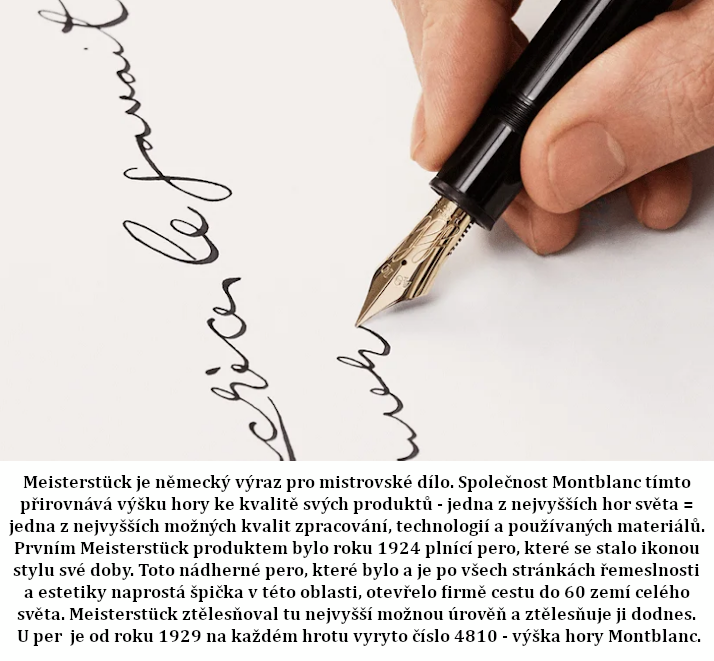 le favait
Meisterstück je německý výraz pro mistrovské dílo. Společnost Montblanc tímto
přirovnává výšku hory ke kvalitě svých produktů - jedna z nejvyšších hor světa =
jedna z nejvyšších možných kvalit zpracování, technologií a používaných materiálů.
Prvním Meisterstück produktem bylo roku 1924 plnící pero, které se stalo ikonou
stylu své doby. Toto nádherné pero, které bylo a je po všech stránkách řemeslnosti
a estetiky naprostá špička v této oblasti, otevřelo firmě cestu do 60 zemí celého
světa. Meisterstück ztělesňoval tu nejvyšší možnou úrověň a ztělesňuje ji dodnes.
U per je od roku 1929 na každém hrotu vyryto číslo 4810 - výška hory Montblanc.